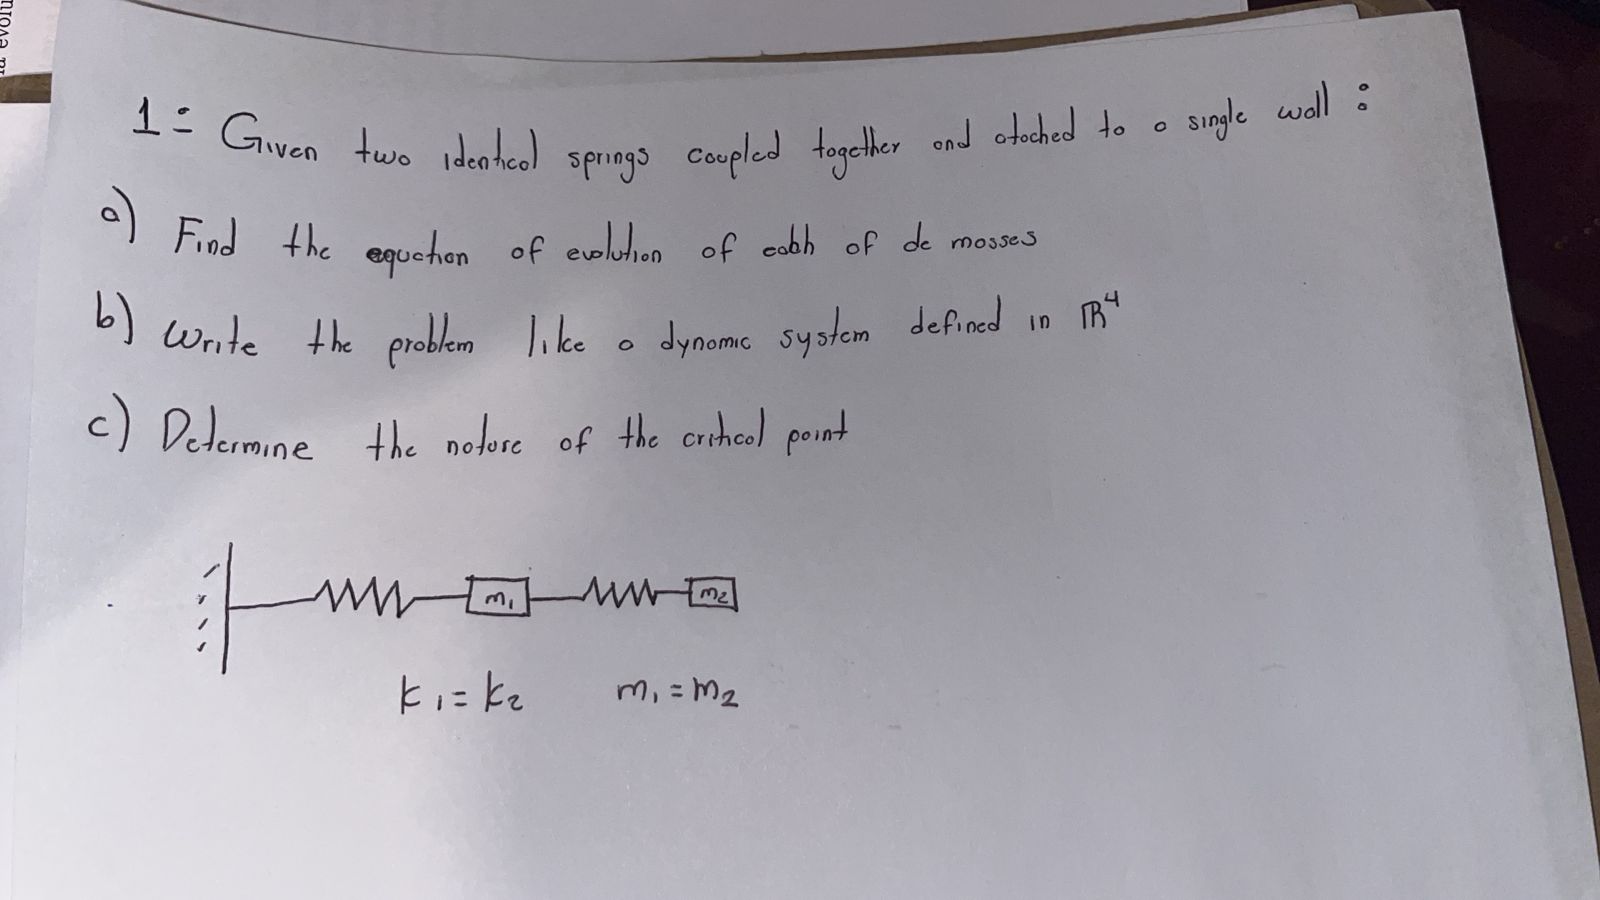 1:= Given two identical springs coupled together and atached to a single wall :
a) Find the equation of evolution of eabh of de masses
b) Write the problem like a dynamic system defined in ℝ⁴
c) Determine the nature of the critical point
m₁ m₂
k₁ = k₂ m₁ = m₂